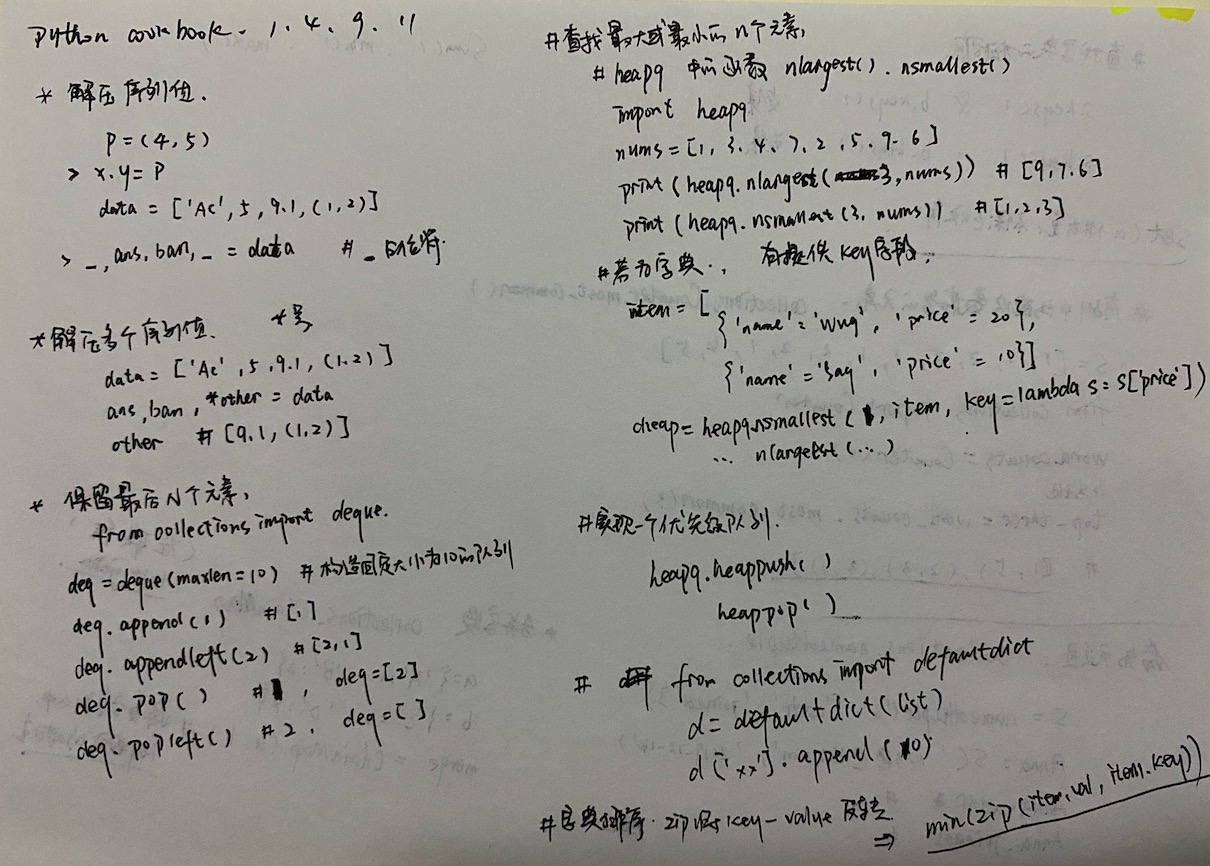 python cookbook. 1. 4. 9. 11
* 解压序列值.
p = (4, 5)
> x.y = p
data = ['Ac', 5, 9.1, (1,2)]
> _, ans, ban, _ = data # _占位符.
* 解压多个序列值. *号
data = ['Ac', 5, 9.1, (1.2)]
ans, ban, *other = data
other # [9.1, (1,2)]
* 保留最后N个元素,
from collections import deque.
deq = deque(maxlen=10) # 构造固定大小为10的队列
deq. append(1) # [1]
deq. appendleft(2) # [2,1]
deq. pop( ) # 1, deq=[2]
deq. popleft( ) # 2, deq=[ ]
#查找最大或最小的n个元素,
# heapq 中的函数 nlargest(). nsmallest()
import heapq
nums = [1, 3. 4. 7. 2, 5. 9. 6]
print (heapq.nlargest(3, nums)) # [9, 7. 6]
print (heapq. nsmallest (3, nums)) # [1,2,3]
#若为字典., 有提供 key 字段,
item = [
{'name' = 'wuq', 'price' = 20},
{'name' = 'saq', 'price' = 10}]
cheap = heapq.nsmallest (1, item, key = lambda s = s['price'])
... nlargelst (...)
#实现一个优先级队列.
heapq.heappush( )
heappop( )
# from collections import defaultdict
d = defaultdict(list)
d ['xx']. append (10)
#字典排序. zip 将 key-value 反转 ⇒ min(zip(item.val, item.key))